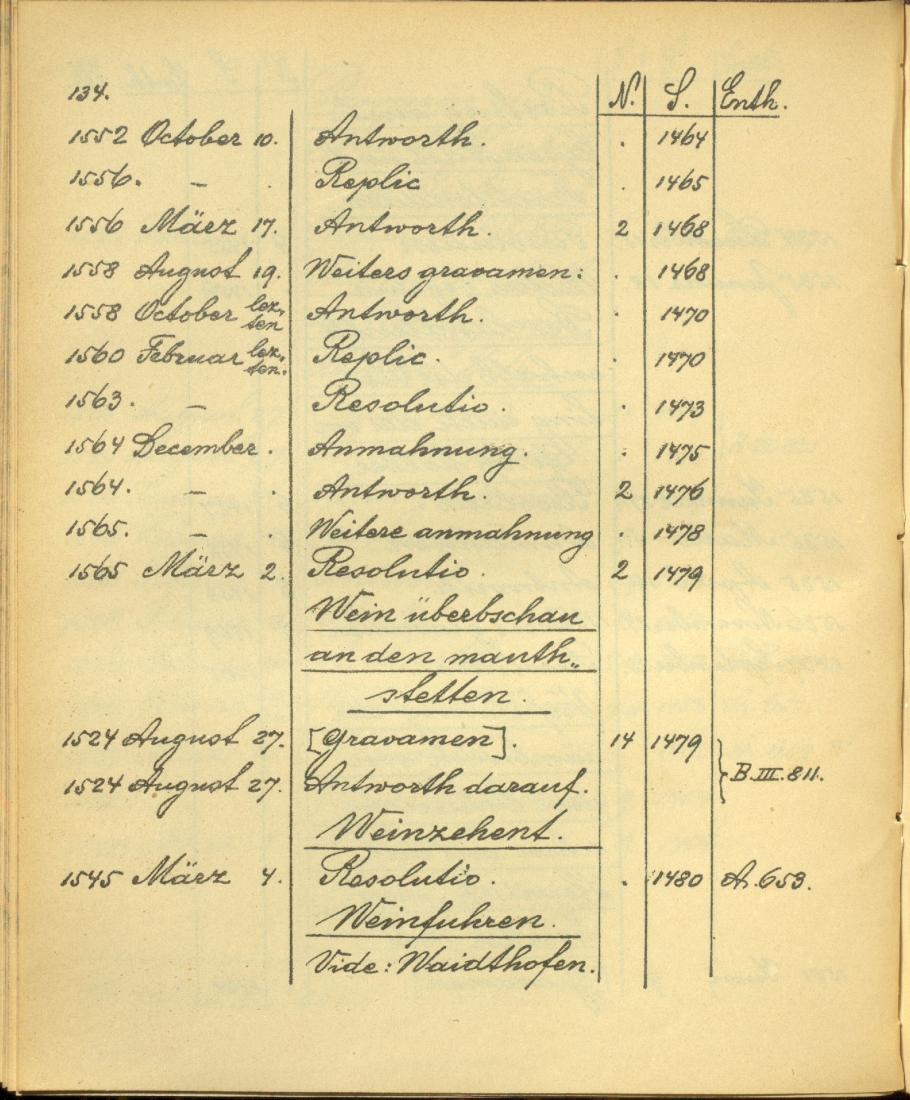 134. N. S. Enth.
1552 October 10. Antworth. . 1464
1556. — . Replic . 1465
1556 März 17. Antworth. 2 1468
1558 August 19. Weiters gravamen: . 1468
1558 October lez„ten Antworth. . 1470
1560 Februar lez„ten. Replic. . 1470
1563. — Resolutio. . 1473
1564 December. Anmahnung. . 1475
1564. — . Antworth. 2 1476
1565. — . Weitere anmahnung . 1478
1565 März 2. Resolutio. 2 1479
Wein überbschau
an den mauth„
stetten.
1524 August 27. [Gravamen]. 14 1479
B.III.811.
1524 August 27. Antworth darauf.
Weinzehent.
1545 März 4. Resolutio. . 1480 A.653.
Weinfuhren.
Vide: Waidthofen.